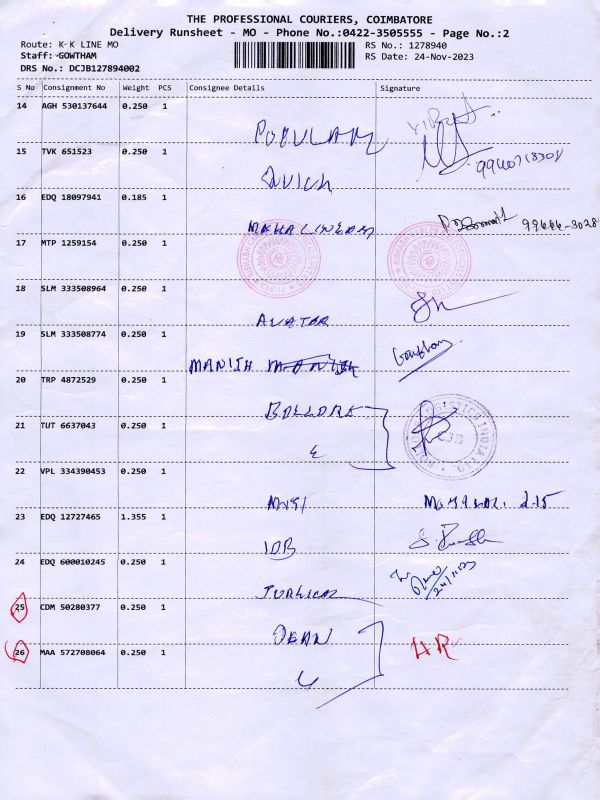 THE PROFESSIONAL COURIERS, COIMBATORE
Delivery Runsheet - MO - Phone No.:0422-3505555 - Page No.:2
Route: K-K LINE MO RS No.: 1278940
Staff: GOWTHAM RS Date: 24-Nov-2023
DRS No.: DCJB127894002
S No Consignment No Weight PCS Consignee Details Signature
14 AGH 530137644 0.250 1
POPULAR
15 TVK 651523 0.250 1
QUICK
16 EDQ 18097941 0.185 1
MAHALINGAM
17 MTP 1259154 0.250 1
18 SLM 333508964 0.250 1
AVATAR
19 SLM 333508774 0.250 1 Gowtham
MANISH
20 TRP 4872529 0.250 1
BOLLORE
21 TUT 6637043 0.250 1
22 VPL 334390453 0.250 1
2.15
23 EDQ 12727465 1.355 1
IOB
24 EDQ 600010245 0.250 1
24/11/23
25 CDM 50280377 0.250 1
26 MAA 572708064 0.250 1